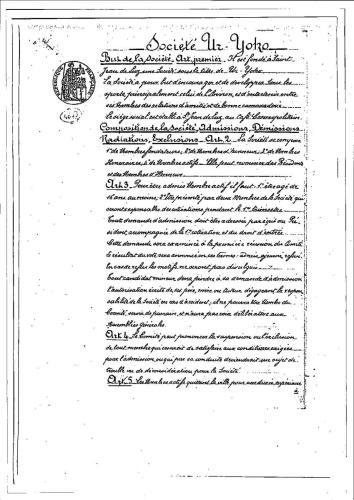 Société Ur-Yoko
But de la Société. Art. premier. Il est fondé à Saint
Jean de Luz une Société sous le titre de Ur-Yoko.
La Société a pour but d'encourager et de développer tous les
sports, principalement celui de l'Aviron, et d'entretenir entre
ses Membres des relations d'amitié et de bonne camaraderie.
Le siège social est établi à St Jean de Luz, au Café
Composition de la Société, Admissions, Démissions
Radiations, Exclusions. Art. 2. La Société se compose
1° de Membres fondateurs, 2° de Membres d'honneur, 3° de Membres
Honoraires, 4° de Membres actifs. Elle peut nommer des Présidents
et des Membres d'Honneur
Art. 3. Pour être admis Membre actif il faut: 1° être âgé de
16 ans au moins, 2° être présenté par deux Membres de la Société qui
seront responsables des cotisations pendant le 1er
Toute demande d'admission doit être adressée par écrit au Pré-
sident, accompagnée de la 1re cotisation et du droit d'entrée.
Cette demande sera examinée à la première réunion du Comité.
Le résultat du vote sera annoncé en ces termes: admis, ajourné, refusé.
En cas de refus les motifs ne seront pas divulgués.
Tout candidat mineur devra joindre à sa demande d'admission
l'autorisation écrite de ses père, mère ou tuteur dégageant la respon-
sabilité de la Société en cas d'accident, et ne pourra être Membre du
Comité, ni prendre part aux délibérations aux
Assemblées Générales.
Art. 4. Le Comité peut prononcer la suspension ou l'exclusion
de tout membre qui cesserait de satisfaire aux conditions exigées
pour l'admission ou qui par sa conduite deviendrait un sujet de
trouble ou de déconsidération pour la Société.
Art. 5. Les Membres actifs quittant la ville pour une durée supérieure